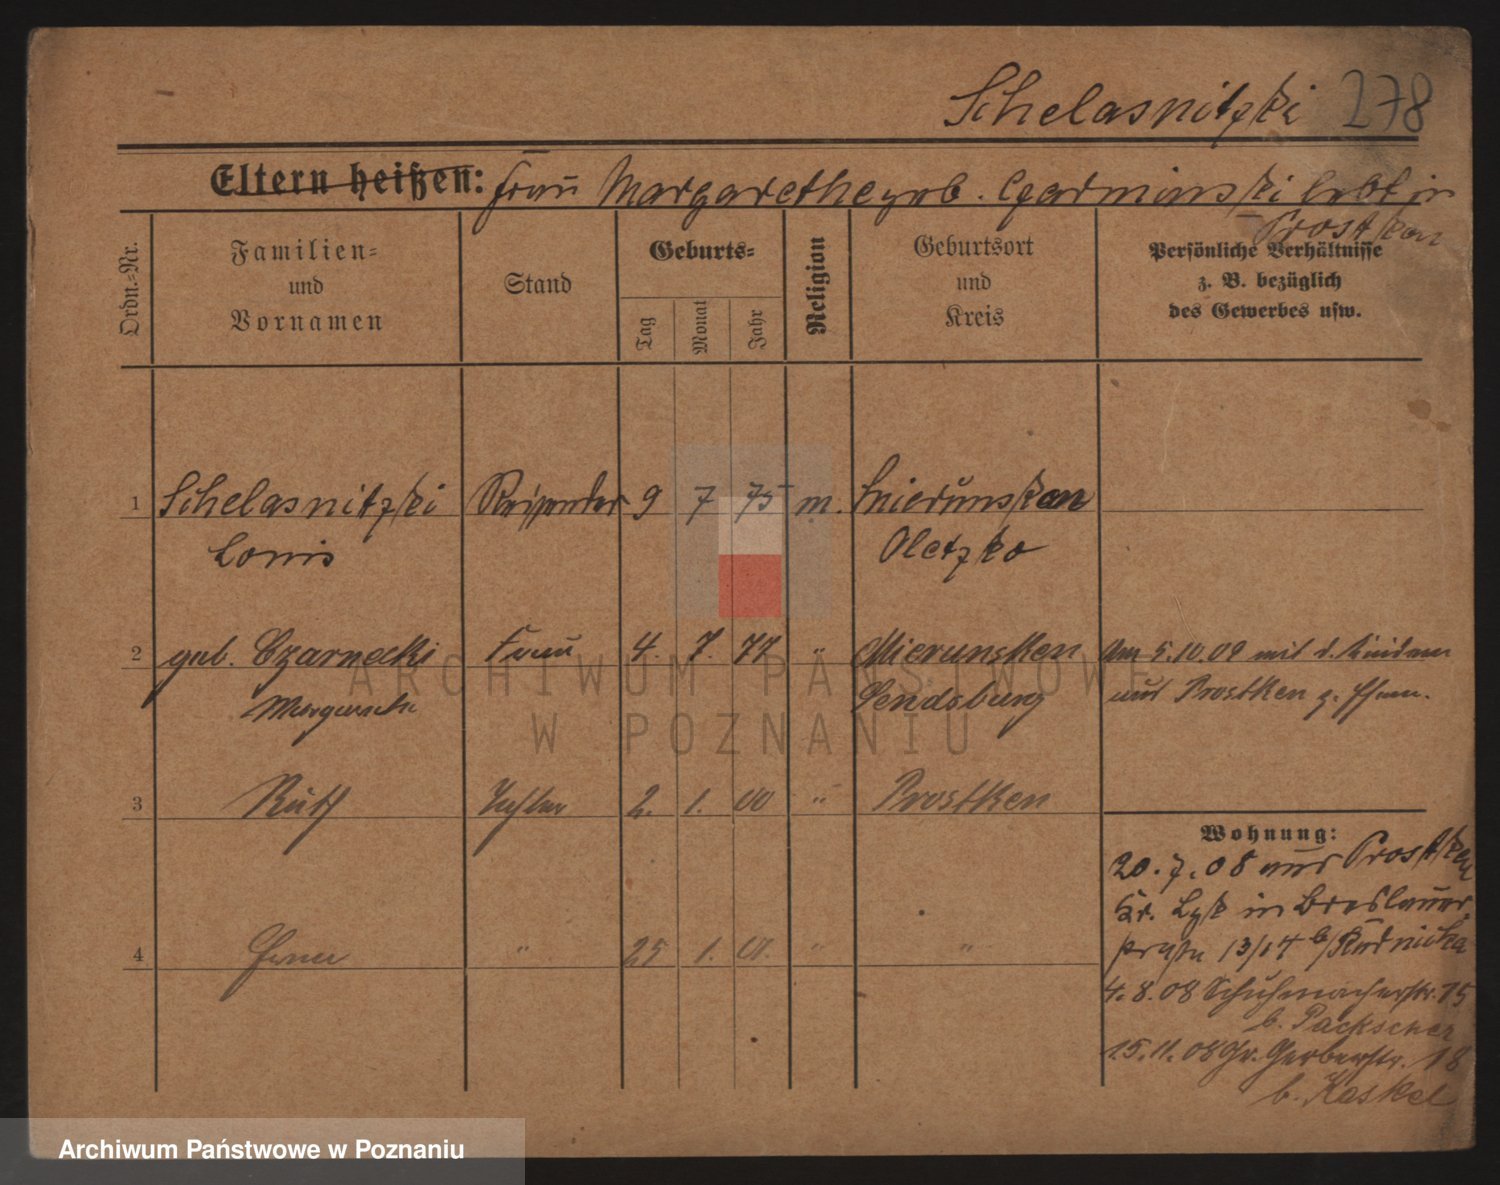 Schelasnitzki 278
Eltern heißen: Frau Margarethe geb. Czarminski lebt in
Prostken
Ordn.-Nr.
Familien-
und
Vornamen
Stand
Geburts-
Tag
Monat
Jahr
Religion
Geburtsort
und
Kreis
Persönliche Verhältnisse
z. B. bezüglich
des Gewerbes usw.
1 Schelasnitzki Reisender 9 7 75 m. Mierunsken
Louis Oletzko
2 geb. Czarnecki Frau 4. 7. 77 " Mierunsken Am 5.10.09 mit d. Kindern
Margarete Sensburg aus Prostken z. Ehem.
3 Ruth Tochter 2. 1. 00 " Prostken
4 Erna " 25 1. 01. " "
Wohnung:
20.7.08 aus Prostken
Kr. Lyk in Breslauer
straße 13/14 b/ Kudnicka
4.8.08 Schuhmacherstr. 15
b. Packscher
15.11.08 Gr. Gerberstr. 18
b. Kaskel
ARCHIWUM PAŃSTWOWE
W POZNANIU
Archiwum Państwowe w Poznaniu